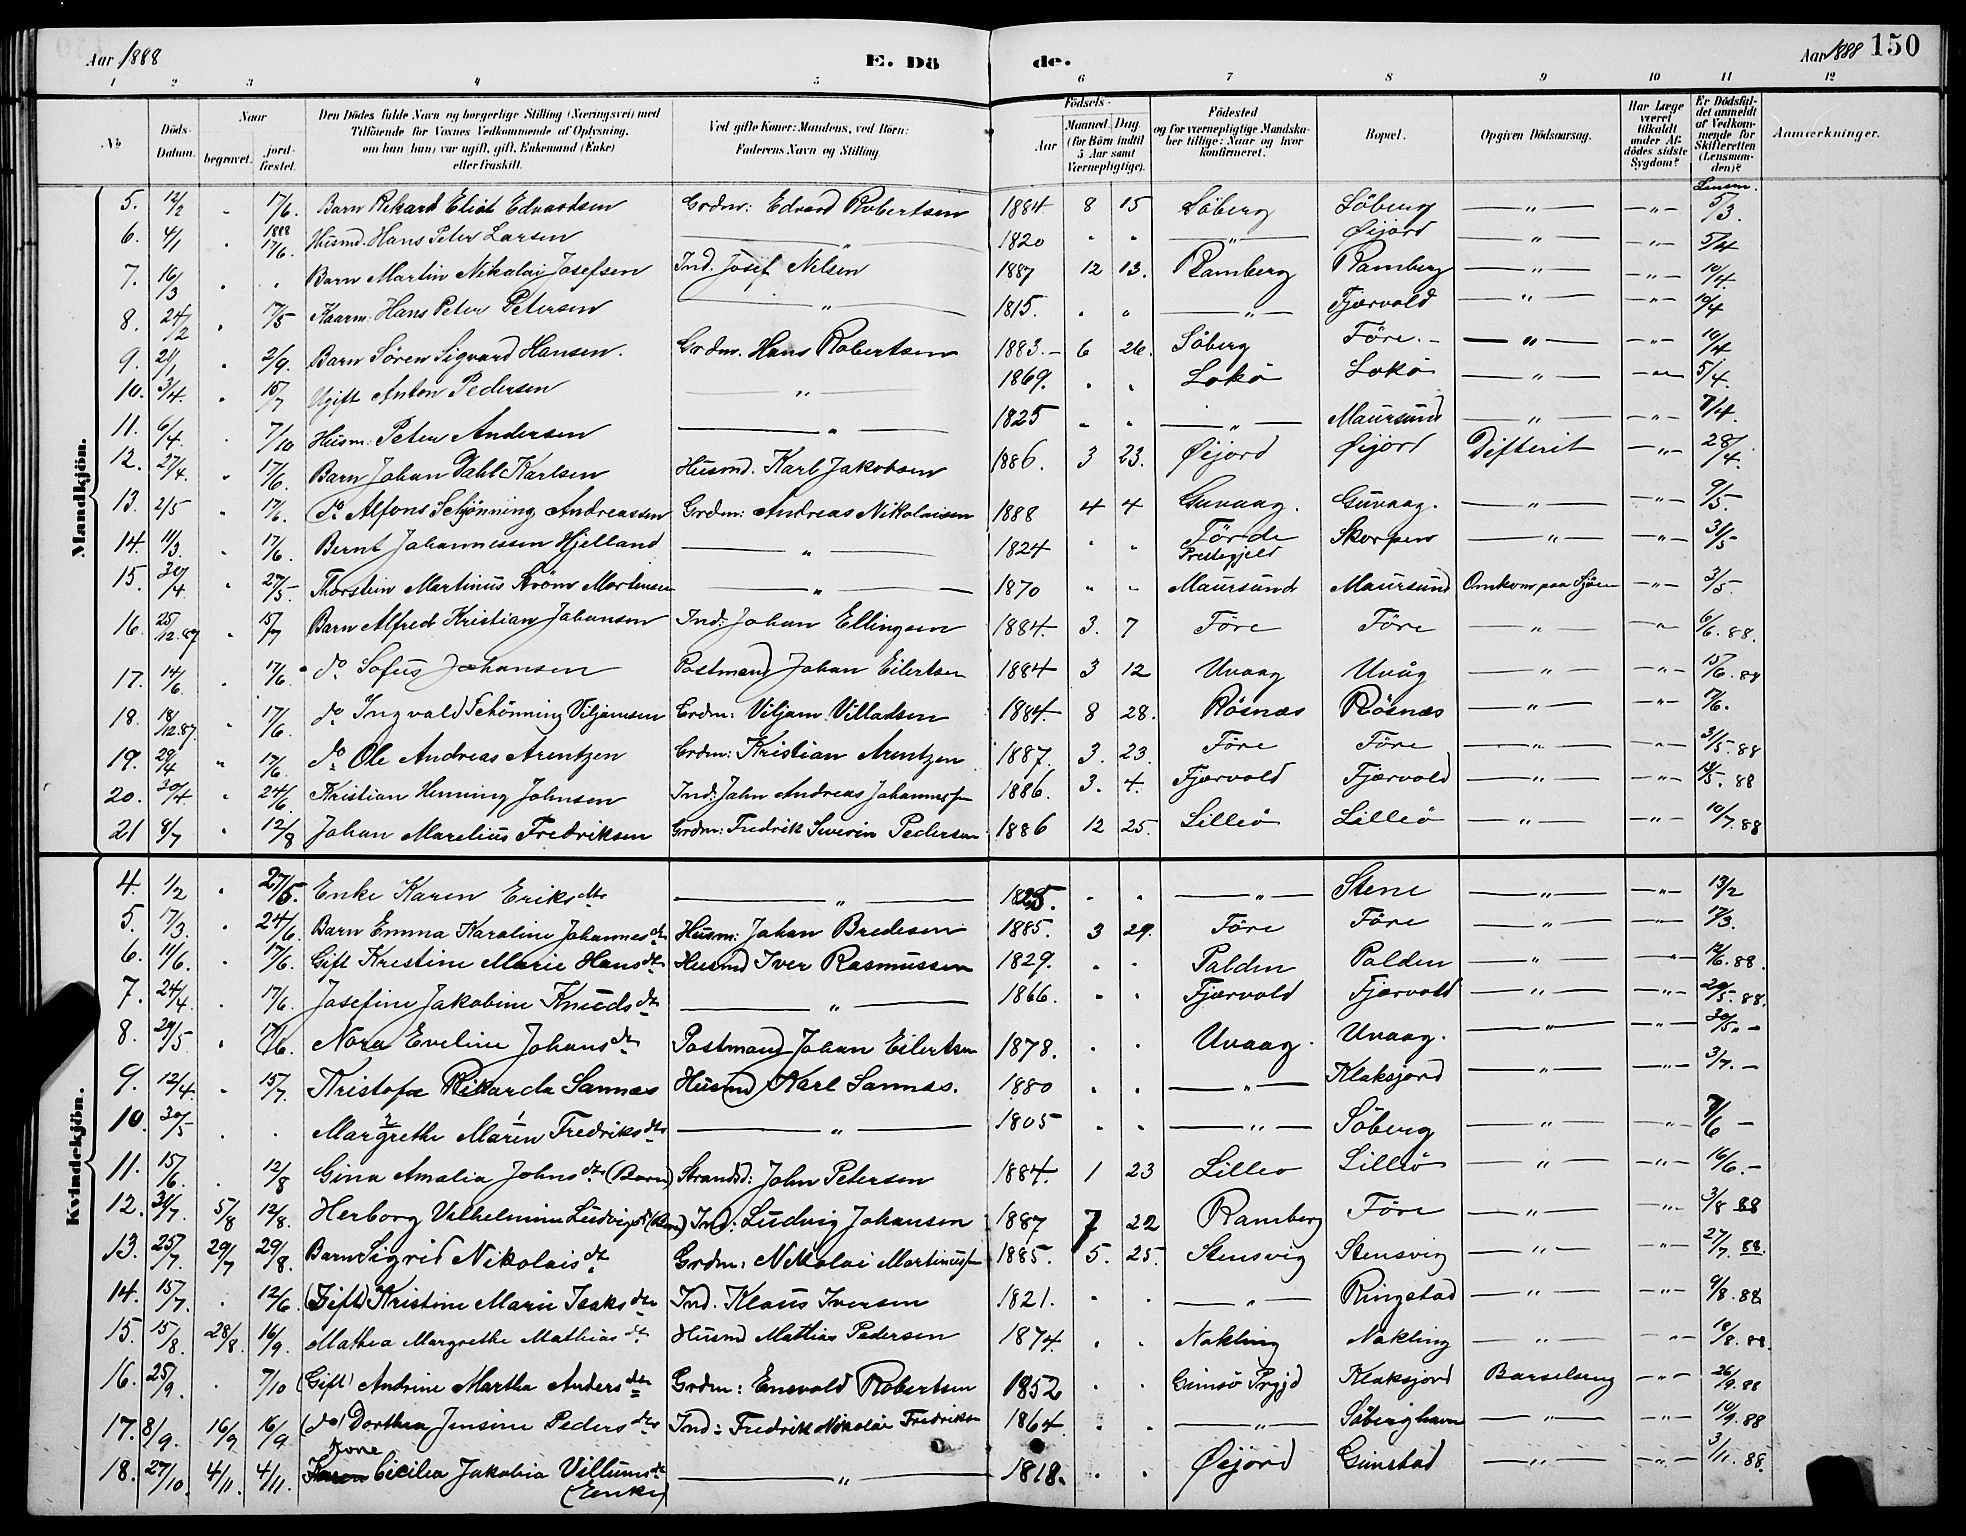 Aar 1888 E. Dö de. Aar 1888 150
1 2 3 4 5 6 7 8 9 10 11 12
No Döds-Datum. Naar begravet. jordfæstet. Den Dödes fulde Navn og borgerlige Stilling (Næringsvei) med Tilföiende for Voxnes Vedkommende af Oplysning, om han (hun) var ugift, gift, Enkemand (Enke) eller fraskilt. Ved gifte Koner: Mandens, ved Börn: Faderens Navn og Stilling Födsels- Aar Maaned. Dag. (for Börn indtil 5 Aar samt Værnepligtige). Födested og for værnepligtige Mandskaber tillige: Naar og hvor konfirmeret. Bopæl. Opgiven Dödsaarsag. Har Læge været tilkaldt under Afdödes sidste Sygdom? Er Dödsfaldet anmeldt af Vedkommende for Skifteretten (Lensmanden)? Anmærkninger.
Mandkjön.
Lensm.
5. 12/2 " 17/6. Barn Rikard Eliot Edvardsen Grdm: Edvard Robertsen 1884 8 15 Söberg Söberg — " — — " — 5/3.
6. 4/1 " 1888 17/6. Husmd. Hans Peter Larsen — " — 1820 " " — " — Öijord — " — — " — 5/4
7. 16/3 " " Barn Martin Nikolai Josefsen Ind. Josef Nilsen 1887 12 13. Ramberg Ramberg — " — — " — 10/4
8. 24/2 " 17/5 Kaarm: Hans Peter Petersen — " — 1815. " " — " — Fjærvold — " — — " — 10/4
9. 21/1 " 2/9. Barn Sören Sigvard Hansen. Grdm. Hans Robertsen 1883.- 6 26. Söberg Före.- — " — — " — 10/4
10. 3/4. " 15/7 Ugift Anton Pedersen — " — 1869. " " Lokö Lokö — " — — " — 5/4.
11. 6/4. " 7/10 Husm: Peter Andersen — " — 1825 " " — " — Maursund — " — — " — 7/4.
12. 27/4 " 17/6. Barn Johan Dahl Karlsen Husmd. Karl Jakobsen 1886. 3 23. Öijord Öijord Difterit — " — 28/4.
13. 2/5 " 17/6. do Alfons Schönning Andreassen Grdm: Andreas Nikolaisen 1888 4 4 Guvaag. Guvaag. — " — — " — 9/5.
14. 11/3. " 17/6. Bernt Johannessen Hjelland — " — 1824 " " Förde Prestegjeld Skorpen — " — — " — 31/5
15. 30/4 " 27/5 Thorstein Martinus Ström Mortensen — " — 1870 " " Maursund Maursund Omkom paa Sjöen — " — 3/5.
16. 25/12.87 " 15/7 Barn Alfred Kristian Johansen Ind: Johan Ellingsen 1884. 3. 7 Före Före — " — — " — 6/6. 88.
17. 14/6. " 17/6. do Sofus Johansen Postmand Johan Eilertsen 1884 3 12 Uvaag Uvåg — " — — " — 15/6. 88
18. 18/12.87. " 17/6. do Ingvald Schönning Viljamsen Grdm: Viljam Villadsen 1884. 8 28. Rösnæs Rösnæs — " — — " — 17/6.
19. 29/4 " 17/6. do Ole Andreas Arentzen Grdm: Kristian Arentzen 1887. 3. 23. Före Före — " — — " — 31/5. 88
20. 30/4 " 24/6 Kristian Henning Johnsen Ind: John Andreas Johannesen 1886. 3. 4. Fjærvold Fjærvold — " — — " — 14/5. 88
21 8/7 " 12/8 Johan Marelius Fredriksen Grdm: Fredrik Severin Pedersen 1886 12 25. Lilleö Lilleö — " — — " — 10/7. 88
Kvindekjön.
4. 1/2 " 27/5. Enke Karen Eriksdtr — " — 1825. " " — " — Stene — " — — " — 13/2
5. 17/3. " 24/6. Barn Emma Karoline Johannesdtr Husm: Johan Bredesen 1885. 3 29. Före Före — " — — " — 17/3.
6. 11/6. " 17/6. Gift Kristine Marie Hansdtr Husmd Iver Rasmussen 1829. " " Palden Palden — " — — " — 12/6. 88.
7. 24/4. " 17/6. Josefine Jakobine Knudsdtr — " — 1866. " " Fjærvold Fjærvold — " — — " — 29/5. 88.
8. 29/5 " 17/6. Nora Eveline Johansdtr Postmand Johan Eilertsen 1878. " " Uvaag. Uvaag. — " — — " — 30/5. -
9. 12/4. " 15/7. Kristofa Rikarda Sannæs Husmd Karl Sannæs. 1880 " " — " — Klaksjord — " — — " — 3/7. -
10. 30/5 " " Margrethe Marin Fredriksdtr — " — 1805 " " — " — Söberg — " — — " — 7/6 -
11. 15/6. " 12/8 Gina Amalia Johnsdtr (Barn) Strands: John Petersen 1884. 1 23 Lilleo Lilleö — " — — " — 16/6. -
12. 31/7. 5/8 12/8. Herborg Vilhelmina Ludvigsd (Barn) Ind: Ludvig Johansen 1887 7 22 Ramberg Före — " — — " — 3/8 88
13. 25/7. 29/7 29/8. Barn Sigrid Nikolaisdtr Grdm: Nikolai Martinussen 1885. 5. 25. Stensvig Stensvig — " — — " — 27/7. 88.
14. 15/7. " 12/6. (Gift) Kristine Marie Isaksdtr Ind. Klaus Iversen 1821. " " — " — Ringstad — " — — " — 9/8. 88
15. 15/8. 28/8. 16/9. Mathea Margrethe Mathiasdtr Husmd Mathias Pedersen 1874. " " Nokling Nokling — " — — " — 18/8. 88.
16. 25/9. " 7/10 (Gift) Andrine Martha Andersdtr Grdm: Ensvold Robertsen 1852 " " Gimsö Prgjd Klaksjord Barselseng — " — 26/9. 88
17. 8/9. 16/9 16/9 (do) Dorthea Jensine Pedersdtr Ind: Fredrik Nikolai Fredriksen 1864. " " — " — Söberghavn — " — — " — 10/9. 88
18. 27/10. 4/11. 4/11. Kone Cicilia Jakobia Villumsdtr (Enke) — " — 1818. " " Öijord Gimstad — " — — " — 3/11. 88.